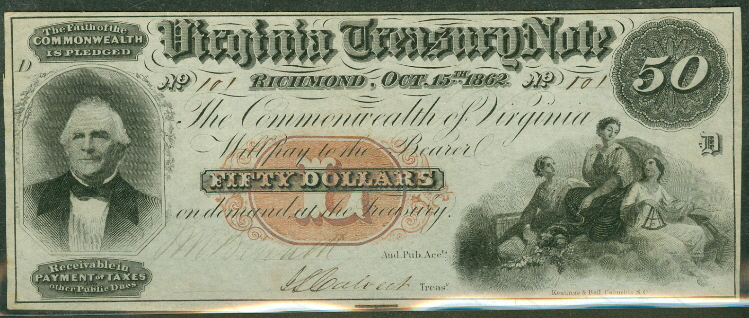 The Faith of the
COMMONWEALTH
IS PLEDGED
Virginia Treasury Note
50
D
No 101 RICHMOND, OCT. 15TH 1862. No 101
The Commonwealth of Virginia
Will pay to the Bearer
D
FIFTY DOLLARS
on demand, at the Treasury.
And. Pub. Acc'ts.
Receivable in
PAYMENT OF TAXES
other Public Dues
Treasr.
Keatinge & Ball, Columbia, S.C.